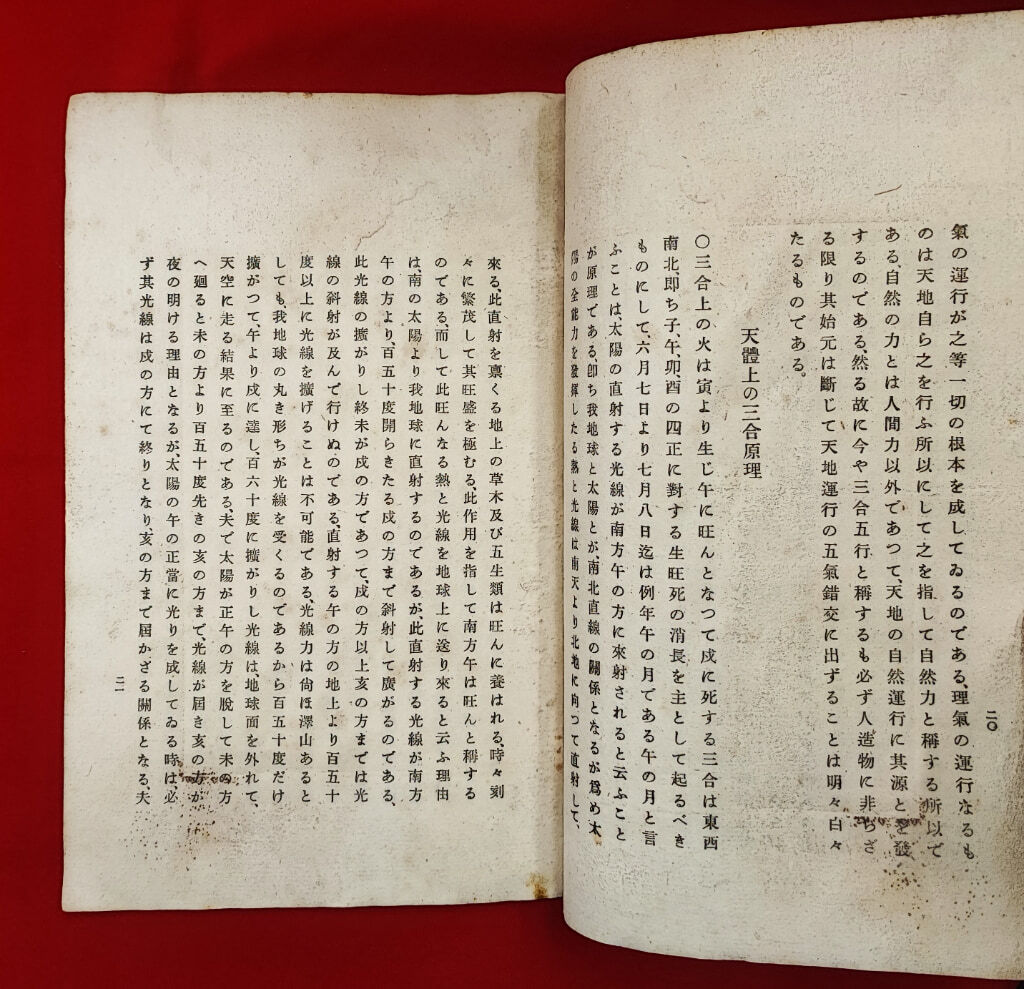 氣の運行が之等一切の根本を成してゐるのである、理氣の運行なるも
のは天地自ら之を行ふ所以にして之を指して自然力と稱する所以で
ある、自然の力とは人間力以外であつて、天地の自然運行に其源とを發
するのである、然る故に今や三合五行と稱するも必ず人造物に非らざ
る限り其始元は斷じて天地運行の五氣錯交に出ずることは明々白々
たるものである。
天體上の三合原理
〇三合上の火は寅より生じ午に旺んとなつて戌に死する三合は東西
南北、即ち子、午、卯、酉の四正に對する生旺死の消長を主として起るべき
ものにして、六月七日より七月八日迄は例年午の月である午の月と言
ふことは、太陽の直射する光線が南方午の方に來射されると云ふこと
が原理である、卽ち我地球と太陽とが、南北直線の關係となるが爲め太
陽の全能力を發揮したる熱と光線は南天より北地に向つて直射して、
二〇
來る、此直射を禀くる地上の草木及び五生類は旺んに養はれる、時々刻
々に繁茂して其旺盛を極むる、此作用を指して南方午は旺んと稱する
のである、而して此旺んなる熱と光線を地球上に送り來ると云ふ理由
は、南の太陽より我地球に直射するのであるが、此直射する光線が南方
午の方より、百五十度開らきたる戌の方まで斜射して廣がるのである、
此光線の擴がりし終末が戌の方であつて、戌の方以上亥の方までは光
線の斜射が及んで行けぬのである、直射する午の方の地上より百五十
度以上に光線を擴げることは不可能である、光線力は尙ほ澤山あると
しても、我地球の丸き形ちが光線を受くるのであるから百五十度だけ
擴がつて、午より戌に達し、百六十度に擴がりし光線は、地球面を外れて、
天空に走る結果に至るのである、夫で太陽が正午の方を脫して未の方
へ廻ると未の方より百五十度先きの亥の方まで、光線が屆き亥の方が
夜の明ける理由となるが、太陽の午の正當に光りを成してゐる時は、必
ず其光線は戌の方にて終りとなり、亥の方まで屆かざる關係となる、夫
二一